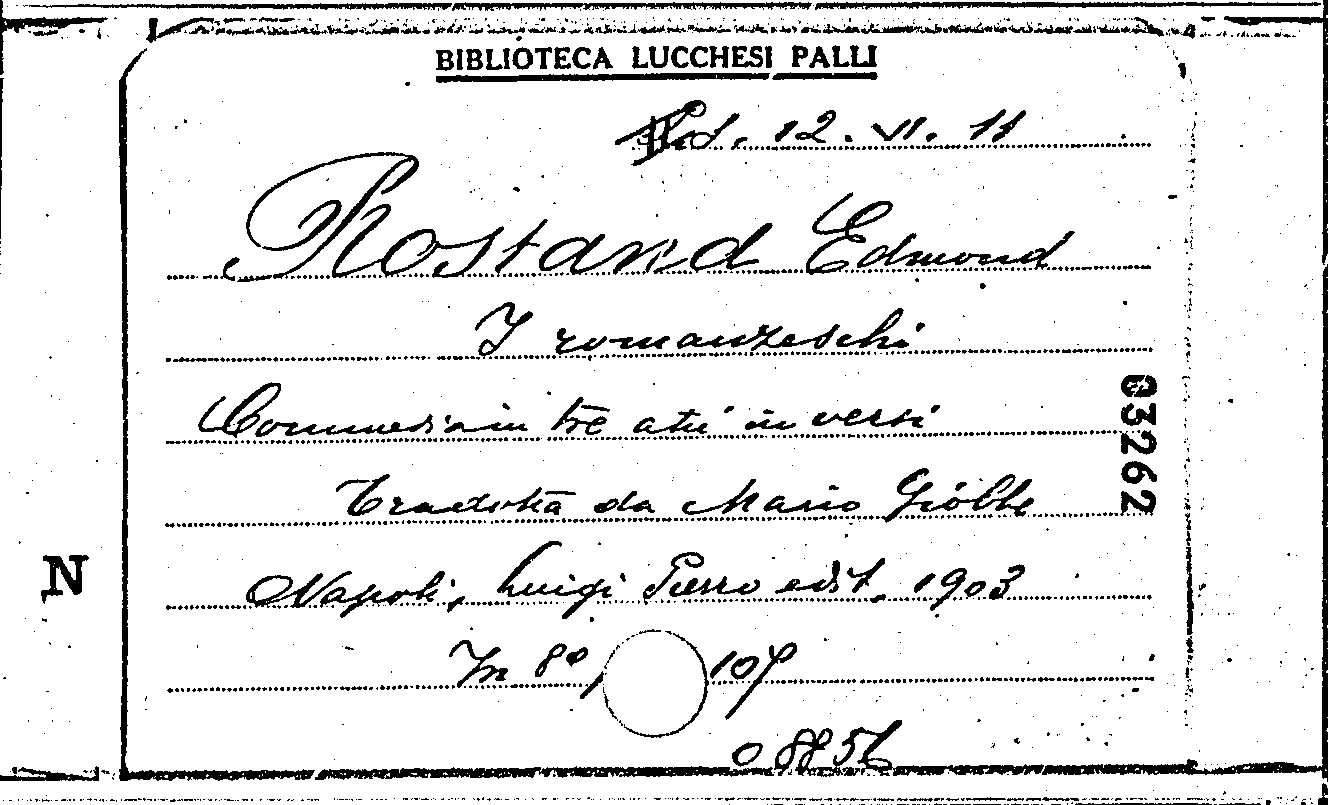 BIBLIOTECA LUCCHESI PALLI
12. VI. 11
Rostand Edmond
I romanzeschi
Commedia in tre atti in versi
Tradotta da Mario Giobbe
Napoli, Luigi Pierro edit. 1903
In 8º, 107
03262
N